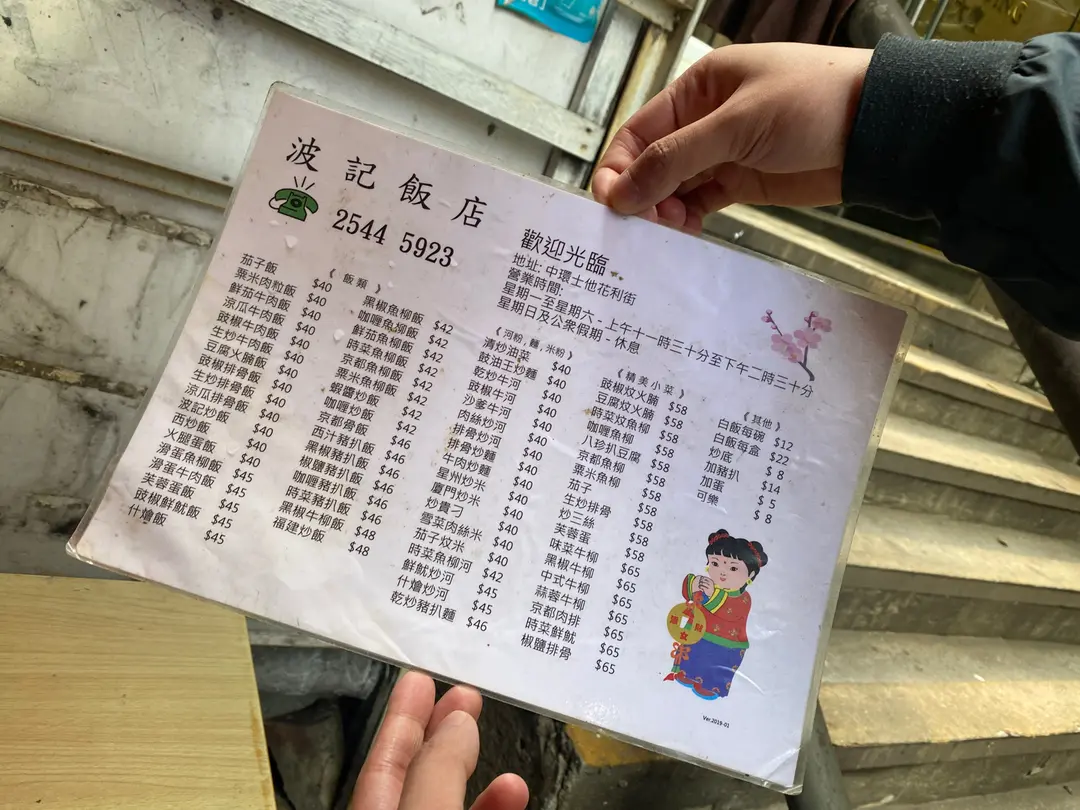 波記飯店
2544 5923
歡迎光臨
地址: 中環士他花利街
營業時間:
星期一至星期六 - 上午十一時三十分至下午二時三十分
星期日及公衆假期 - 休息
《 飯 類 》
茄子飯 $40
粟米肉粒飯 $40
鮮茄牛肉飯 $40
涼瓜牛肉飯 $40
豉椒牛肉飯 $40
生炒牛肉飯 $40
豆腐火腩飯 $40
豉椒排骨飯 $40
生炒排骨飯 $40
涼瓜排骨飯 $40
波記炒飯 $40
西炒飯 $40
火腿蛋飯 $40
滑蛋魚柳飯 $45
滑蛋牛肉飯 $45
芙蓉蛋飯 $45
豉椒鮮魷飯 $45
什燴飯 $45
黑椒魚柳飯 $42
咖喱魚柳飯 $42
鮮茄魚柳飯 $42
時菜魚柳飯 $42
京都魚柳飯 $42
粟米魚柳飯 $42
蝦醬炒飯 $42
咖喱炒飯 $42
京都骨飯 $46
西汁豬扒飯 $46
黑椒豬扒飯 $46
椒鹽豬扒飯 $46
咖喱豬扒飯 $46
時菜豬扒飯 $46
黑椒牛柳飯 $48
福建炒飯 $48
《 河粉 , 麵 , 米粉 》
清炒油菜 $40
鼓油王炒麵 $40
乾炒牛河 $40
豉椒牛河 $40
沙爹牛河 $40
肉絲炒麵 $40
排骨炒河 $40
排骨炒麵 $40
牛肉炒麵 $40
星州炒米 $40
廈門炒米 $40
炒貴刁 $40
雪菜肉絲米 $40
茄子炆米 $40
時菜魚柳河 $42
鮮魷炒河 $45
什燴炒河 $45
乾炒豬扒麵 $46
《 精 美 小 菜 》
豉椒炆火腩 $58
豆腐炆火腩 $58
時菜炆魚柳 $58
咖喱魚柳 $58
八珍扒豆腐 $58
京都魚柳 $58
粟米魚柳 $58
茄子 $58
生炒排骨 $58
炒三絲 $58
芙蓉蛋 $58
味菜牛柳 $65
黑椒牛柳 $65
中式牛柳 $65
蒜蓉牛柳 $65
京都肉排 $65
時菜鮮魷 $65
椒鹽排骨 $65
《 其他 》
白飯每碗 $12
白飯每盒 $22
炒底 $ 8
加豬扒 $14
加蛋 $ 5
可樂 $ 8
Ver.2019-01